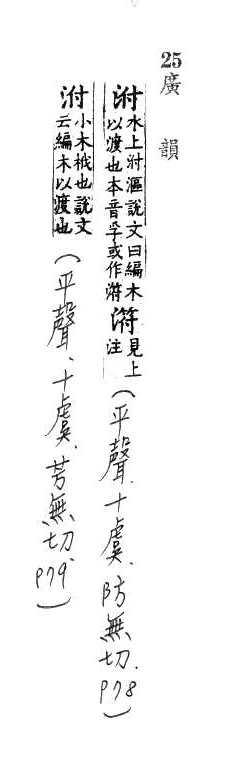 25
廣韻
泭水上泭漚說文曰編木以渡也本音孚或作䍮䍮見上注(平聲、十虞、防無切、P78)
泭小木栰也說文云編木以渡也(平聲、十虞、芳無切、P79)